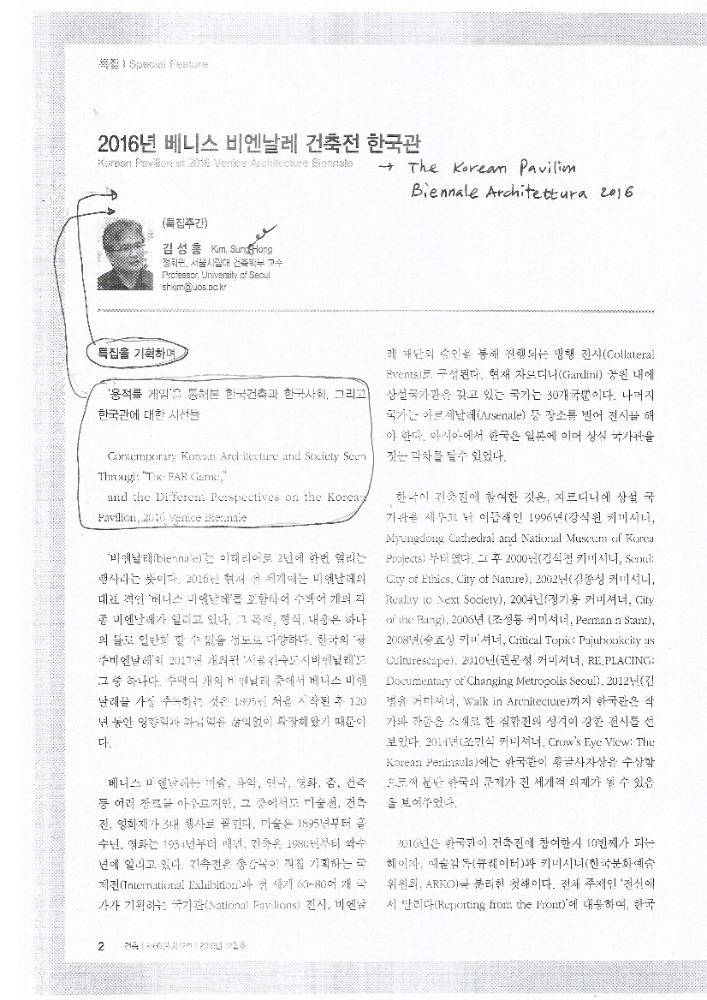 특집 | Special Feature
2016년 베니스 비엔날레 건축전 한국관
Korean Pavilion at 2016 Venice Architecture Biennale
→ The Korean Pavilion
Biennale Architettura 2016
(특집주간)
김성홍 Kim, Sung Hong
정회원, 서울시립대 건축학부 교수
Professor, University of Seoul
shkim@uos.ac.kr
특집을 기획하며
'용적률 게임'을 통해본 한국건축과 한국사회, 그리고
한국관에 대한 시선들
Contemporary Korean Architecture and Society Seen
Through "The FAR Game,"
and the Different Perspectives on the Korean
Pavilion, 2016 Venice Biennale
'비엔날레(biennale)'는 이태리어로 2년에 한번 열리는
행사라는 뜻이다. 2016년 현재 전 세계에는 비엔날레의
대표 격인 '베니스 비엔날레'를 포함하여 수백여 개의 각
종 비엔날레가 열리고 있다. 그 목적, 형식, 내용은 하나
의 틀로 일반화 할 수 없을 정도로 다양하다. 한국의 '광
주비엔날레'와 2017년 개최된 '서울건축도시비엔날레'도
그 중 하나다. 수백여 개의 비엔날레 중에서 베니스 비엔
날레를 가장 주목하는 것은 1895년 처음 시작된 후 120
년 동안 영향력과 파급력을 끊임없이 확장해왔기 때문이
다.
베니스 비엔날레는 미술, 음악, 연극, 영화, 춤, 건축
등 여러 장르를 아우르지만, 그 중에서도 미술전, 건축
전, 영화제가 3대 행사로 꼽힌다. 미술은 1895년부터 홀
수년, 영화는 1934년부터 매년, 건축은 1980년부터 짝수
년에 열리고 있다. 건축전은 총감독이 직접 기획하는 국
제전(International Exhibition)과 전 세계 60~80여 개 국
가가 기획하는 국가관(National Pavilions) 전시, 비엔날
레 재단의 승인을 통해 진행되는 병행 전시(Collateral
Events)로 구성된다. 현재 자르디니(Gardini) 공원 내에
상설국가관을 갖고 있는 국가는 30개국뿐이다. 나머지
국가는 아르세날레(Arsenale) 등 장소를 빌어 전시를 해
야 한다. 아시아에서 한국은 일본에 이어 상설 국가관을
짓는 막차를 탈수 있었다.
한국이 건축전에 참여한 것은, 자르디니에 상설 국
가관을 세우고 난 이듬해인 1996년(강석원 커미셔너,
Myungdong Cathedral and National Museum of Korea
Projects) 부터였다. 그 후 2000년(김석철 커미셔너, Seoul:
City of Ethics, City of Nature), 2002년(김종성 커미셔너,
Reality to Next Society), 2004년(정기용 커미셔너, City
of the Bang), 2006년 (조성룡 커미셔너, Perman n Stant),
2008년(승효상 커미셔너, Critical Topic: Pajubookcity as
Culturescape), 2010년(권문성 커미셔너, RE.PLACING:
Documentary of Changing Metropolis Seoul), 2012년(김
병윤 커미셔너, Walk in Architecture)까지 한국관은 작
가와 작품을 소재로 한 집합전의 성격이 강한 전시를 선
보였다. 2014년(조민석 커미셔너, Crow's Eye View: The
Korean Peninsula)에는 한국관이 황금사자상을 수상함
으로써 분단 한국의 문제가 전 세계적 의제가 될 수 있음
을 보여주었다.
2016년은 한국관이 건축전에 참여한지 10번째가 되는
해이자, 예술감독(큐레이터)과 커미셔너(한국문화예술
위원회, ARKO)를 분리한 첫해이다. 전체 주제인 '전선에
서 알리다(Reporting from the Front)'에 대응하여, 한국
2 건축 | 제60권 제12호 | 2016년 12월호